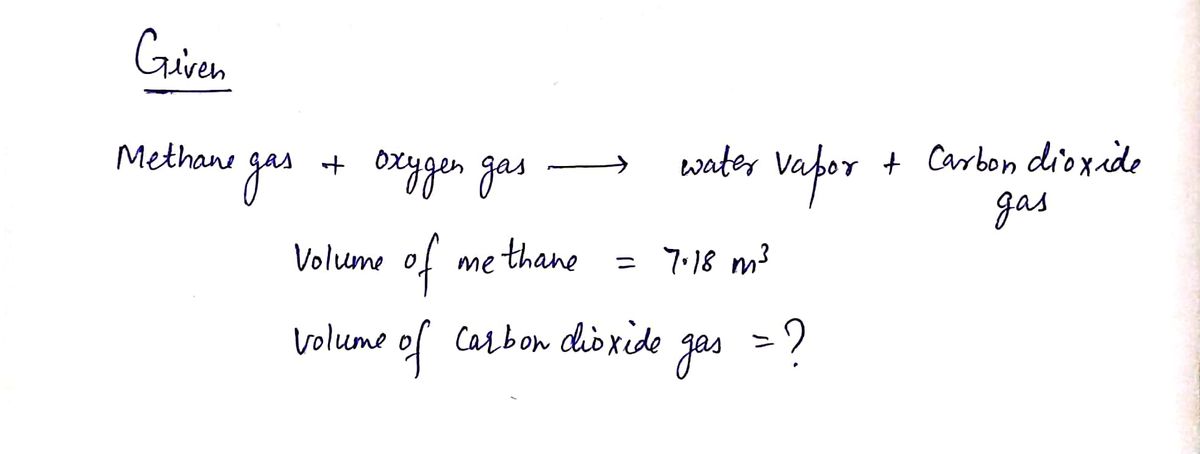 Given
Methane gas + oxygen gas ⟶ water vapor + Carbon dioxide gas
Volume of methane = 7·18 m³
volume of Carbon dioxide gas = ?